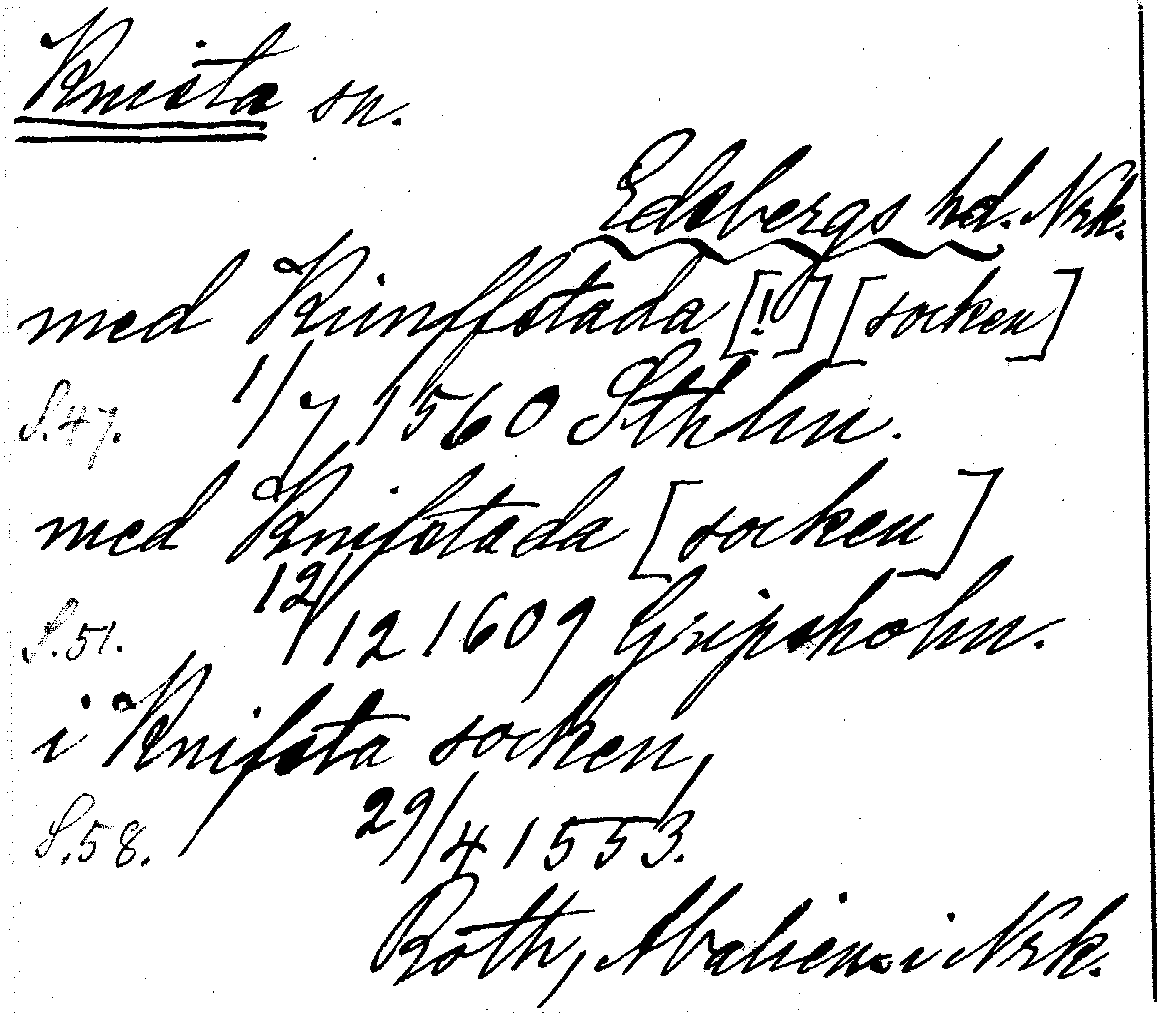 Knista sn.
Edsbergs hd. Nrk.
med Kunffstada [!] [socken]
S.47. 1/7 1560 Sthlm.
med Knifstada [socken]
S.51. 12/12 1609 Gripsholm.
i Knifsta socken,
S.58. 29/4 1553.
Roth, i Nrk.